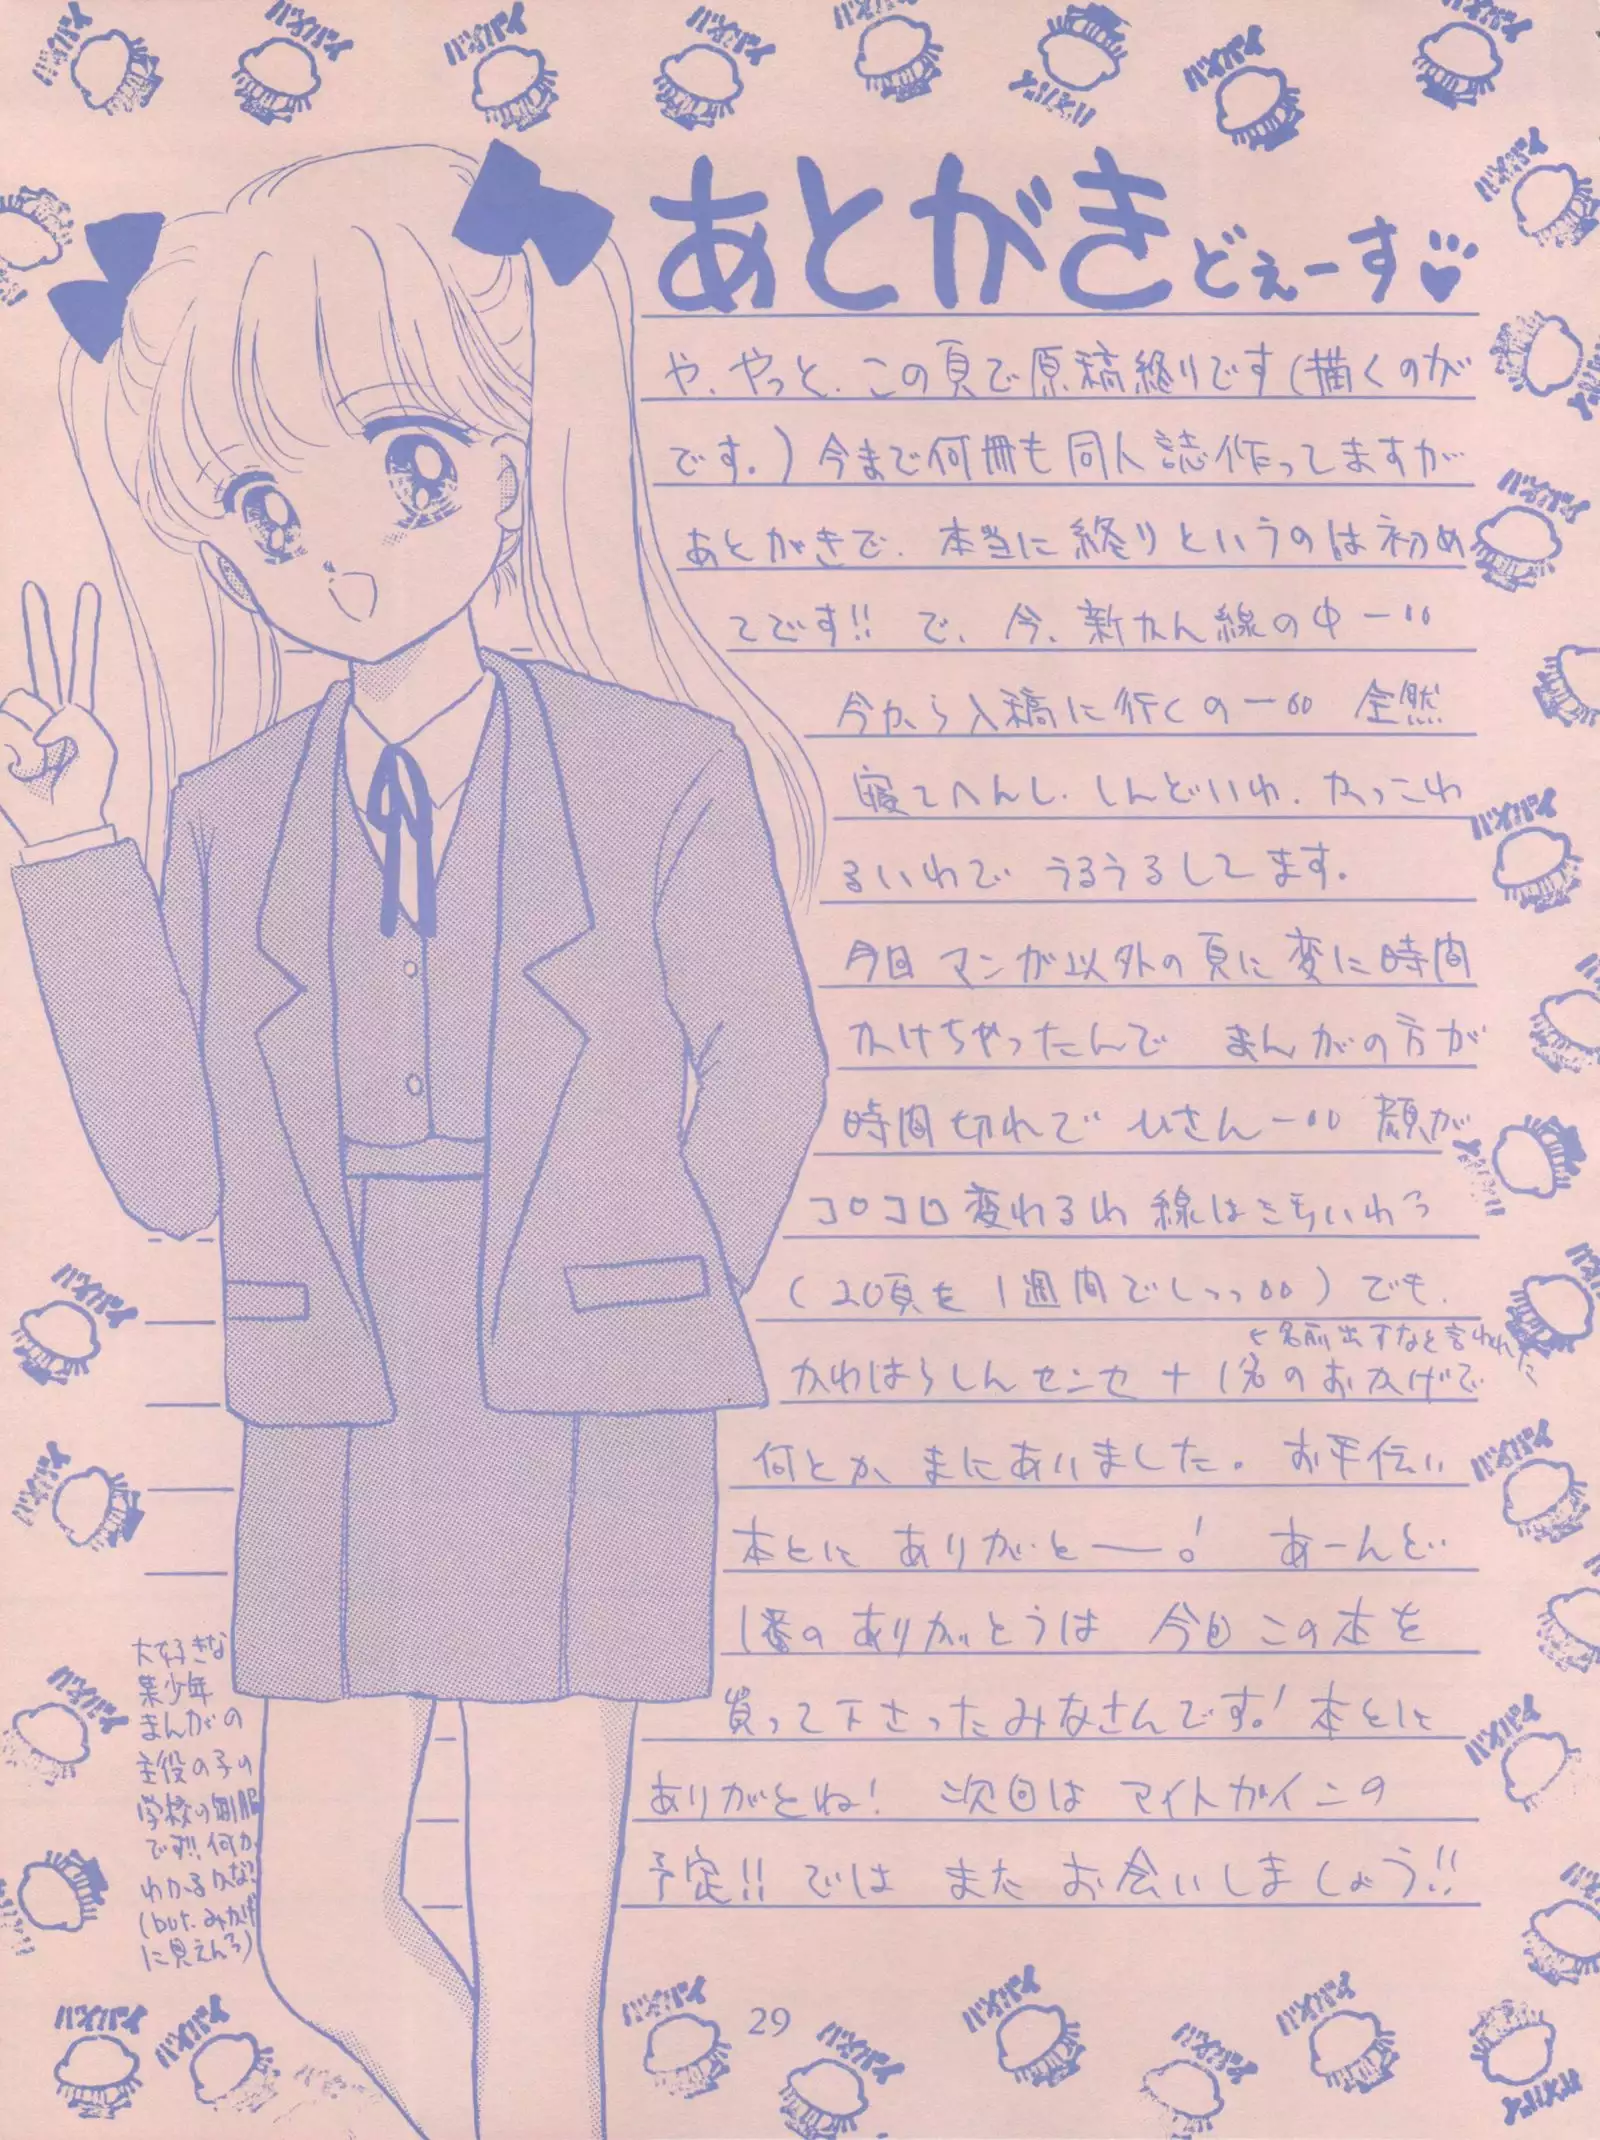 あとがきどぇーす
や、やっと、この頁で原稿終りです(描くのが
です。)今まで何冊も同人誌作ってますが
あとがきで、本当に終りというのは初め
てです!!で、今、新かん線の中ー
今から入稿に行くのー 全然
寝てへんし、しんどいわ、かっこわ
るいわで うるうるしてます。
今回マンガ以外の頁に変に時間
かけちゃったんで まんがの方が
時間切れで ひさんー 顔が
コロコロ変わるわ 線は
(20頁を1週間で)でも、
←名前出すなと言われた
かわはらしんセンセ+1名のおかげで
何とか、まにあいました。お手伝い
本とに ありがとー! あーんど
1番のありがとうは 今回この本を
買って下さったみなさんです!本とに
ありがとね! 次回は マイトガインの
予定!!では また お会いしましょう!!
大好きな
某少年
まんがの
主役の子の
学校の制服
です!!何か
わかるかな?
(but、
に見えん)
29
バイバイ